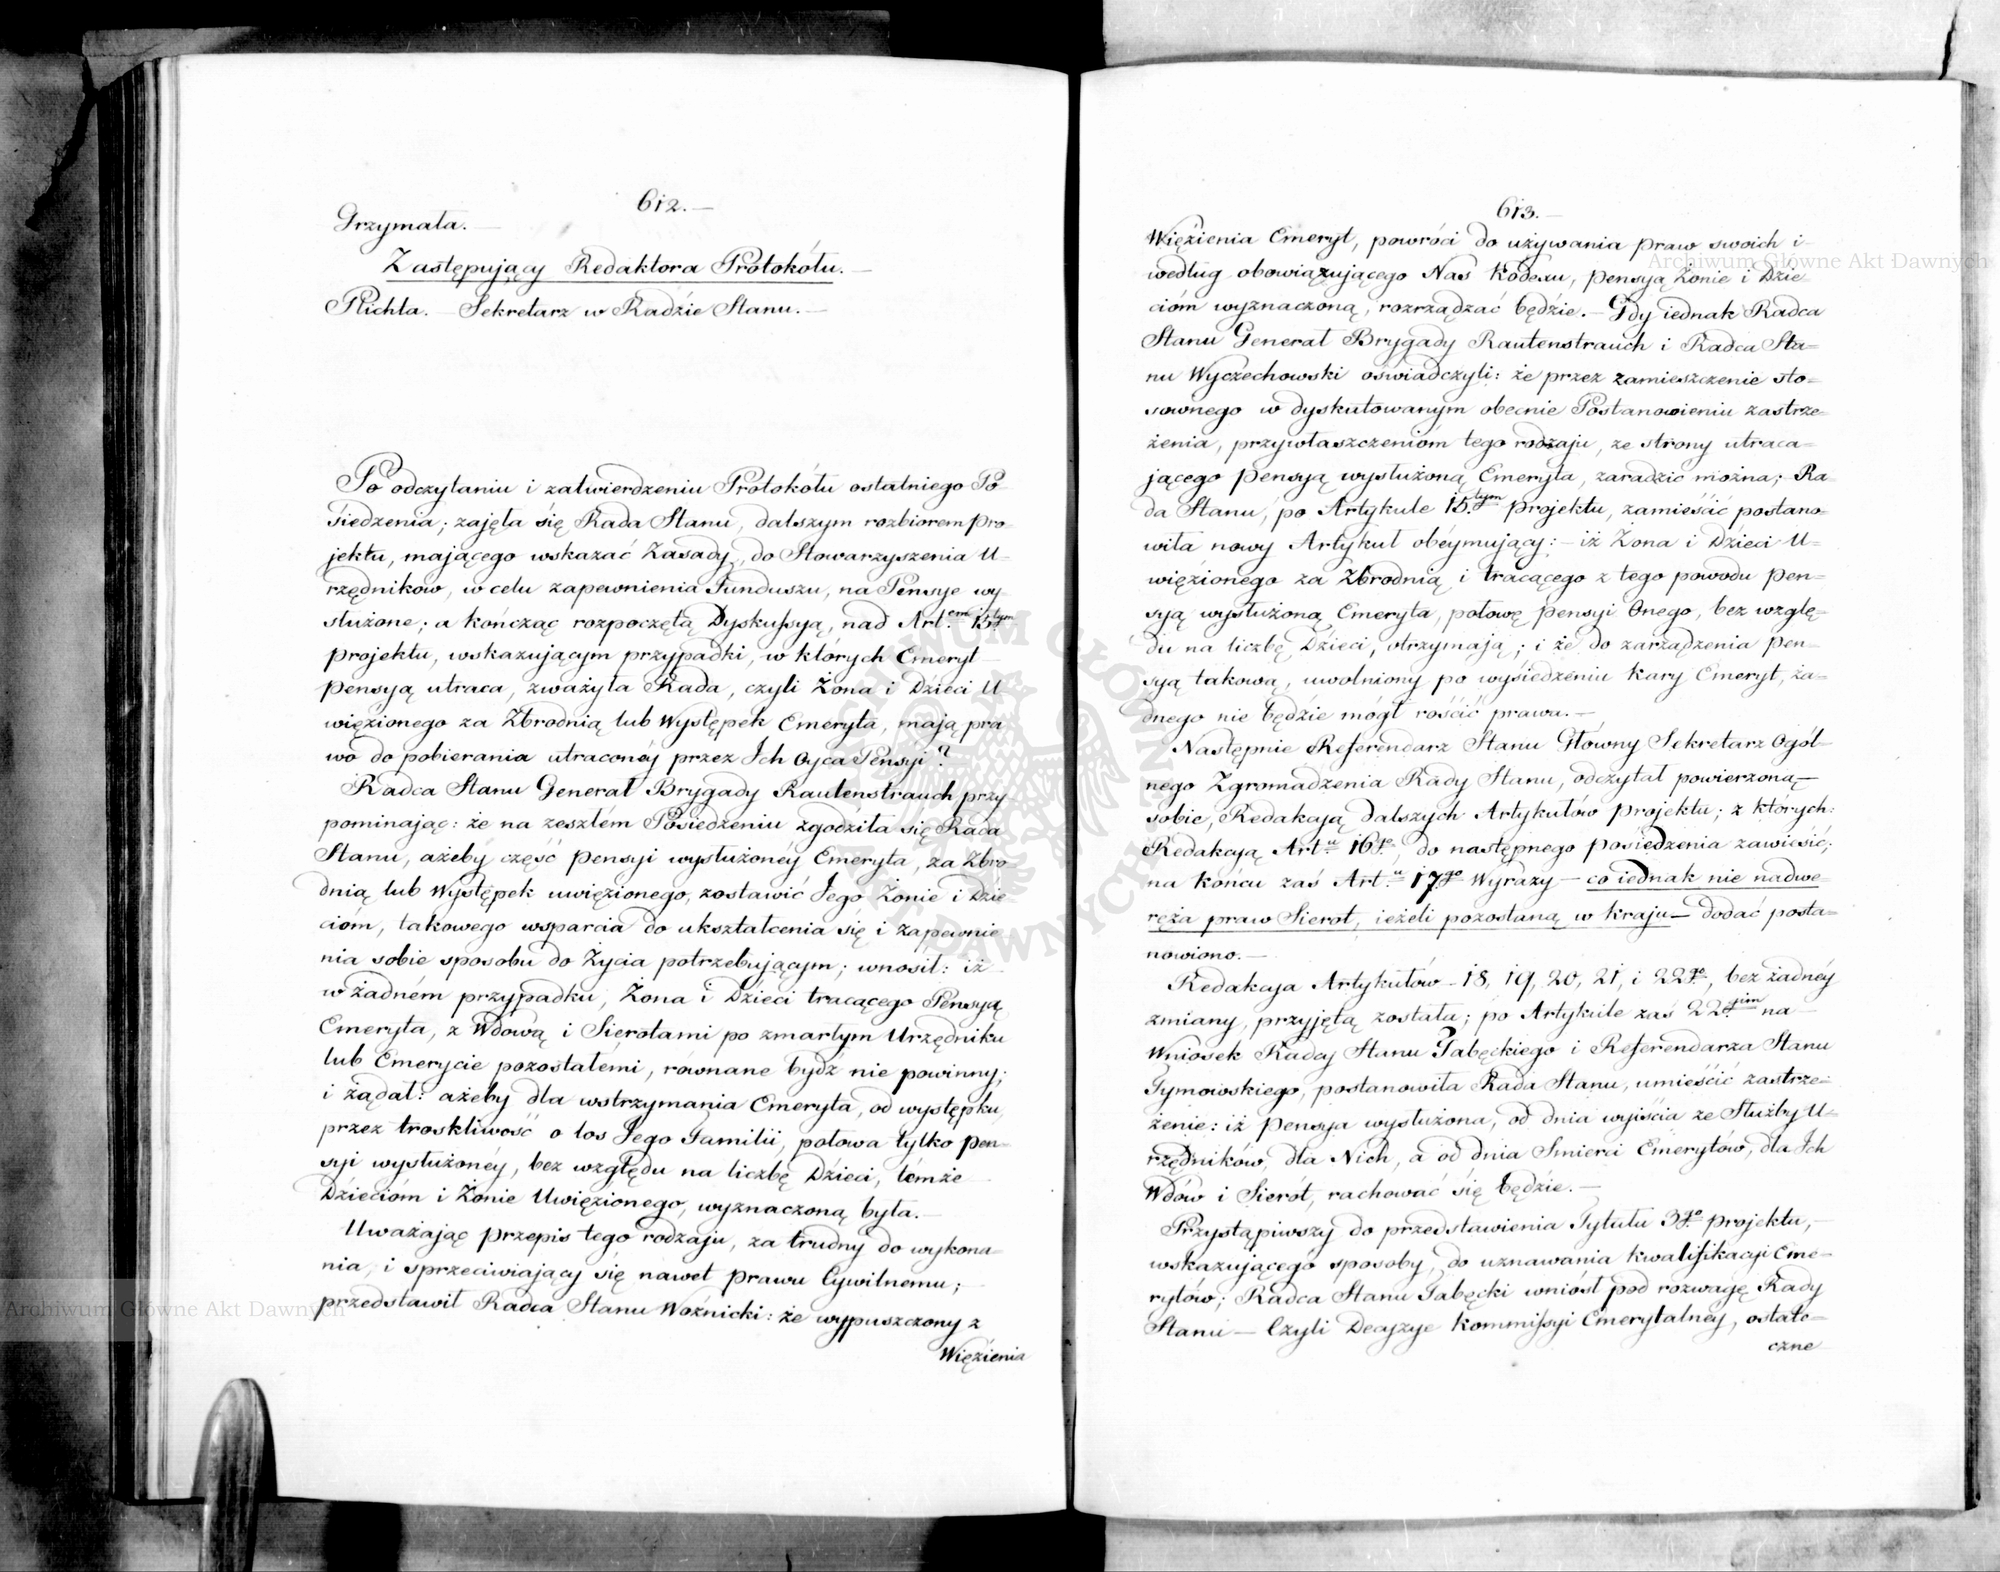 612.—
Grzymała.—
Zastępujący Redaktora Protokółu.—
Plichta.—Sekretarz w Radzie Stanu.—
Po odczytaniu i zatwierdzeniu Protokółu ostatniego Po-
siedzenia; zajęła się Rada Stanu, dalszym rozbiorem pro-
jektu, mającego wskazać Zasady, do Stowarzyszenia U-
rzędników, w celu zapewnienia Funduszu, na Pensye wy-
służone; a kończąc rozpoczętą Dyskussyą, nad Art.em 15.tym
projektu, wskazującym przypadki, w których Emeryt
pensyą utraca, zważyła Rada, czyli Żona i Dzieci U
więzionego za Zbrodnią lub Występek Emeryta, mają pra
wo do pobierania utraconéy przez Ich Oyca Pensyi?
Radca Stanu Generał Brygady Rautenstrauch przy-
pominając: że na zeszłém Posiedzeniu zgodziła się Rada
Stanu, ażeby część pensyi wysłużonéy Emeryta, za Zbro-
dnią lub Występek uwięzionego, zostawić Jego Żonie i Dzie-
cióm, takowego wsparcia do ukształcenia się i zapewnie-
nia sobie sposobu do Życia potrzebującym; wnosił: iż
w żadném przypadku, Żona i Dzieci tracącego Pensyą
Emeryta, z Wdową i Sierotami po zmarłym Urzędniku
lub Emerycie pozostałemi, równane bydź nie powinny;
i żądał: ażeby dla wstrzymania Emeryta, od występku,
przez troskliwość o los Jego Familii, połowa tylko pen-
syi wysłużonéy, bez względu na liczbę Dzieci, témże
Dzieciom i Żonie Uwięzionego, wyznaczoną była.—
Uważając przepis tego rodzaju, za trudny do wykona-
nia, i sprzeciwiający się nawet prawu Cywilnemu;
przedstawił Radca Stanu Woźnicki: że wypuszczony z
Więzienia
613.—
Więzienia Emeryt, powróci do używania praw swoich i
według obowiązującego Nas Kodexu, pensyą Żonie i Dzie
cióm wyznaczoną, rozrządzać będzie.—Gdy iednak Radca
Stanu Generał Brygady Rautenstrauch i Radca Sta=
nu Wyczechowski oświadczyli: że przez zamieszczenie sto=
sownego w dyskutowanym obecnie Postanowieniu zastrze-
żenia, przywłaszczeniom tego rodzaju, ze strony utraca=
jącego pensyą wysłużoną Emeryta, zaradzić można; Ra-
da Stanu, po Artykule 15.tym projektu, zamieścić postano-
wiła nowy Artykuł obéymujący:—iż Żona i Dzieci U=
więzionego za Zbrodnią i tracącego z tego powodu pen=
syą wysłużoną Emeryta, połowę pensyi Onego, bez wzglę-
du na liczbę Dzieci, otrzymają; i że do zarządzenia pen=
syą takową, uwolniony po wysiedzeniu kary Emeryt, ża=
dnego nie będzie mógł rościć prawa.—
Następnie Referendarz Stanu Główny Sekretarz Ogól-
nego Zgromadzenia Rady Stanu, odczytał powierzoną—
sobie, Redakcją dalszych Artykułów projektu; z których:
Redakcją Art.u 16.go, do następnego posiedzenia zawiesić;
na końcu zaś Art.u 17.go Wyrazy—co iednak nie nadwe=
ręża praw Sierot, ieżeli pozostaną w kraju—dodać posta=
nowiono.—
Redakcja Artykułów 18, 19, 20, 21, i 22.go, bez żadnéy
zmiany, przyjętą została; po Artykule zaś 22.gim na
Wniosek Radcy Stanu Tabęckiego i Referendarza Stanu
Tymowskiego, postanowiła Rada Stanu, umieścić zastrze=
żenie: iż pensya wysłużona, od dnia wyiścia ze Służby U=
rzędników, dla Nich, a od dnia Smierci Emerytów, dla Ich
Wdów i Sierot, rachować się będzie.—
Przystąpiwszy do przedstawienia Tytułu 3.go projektu,—
wskazującego sposoby, do uznawania kwalifikacyi Eme-
rytów; Radca Stanu Tabęcki wniósł pod rozwagę Rady
Stanu—Czyli Decyzye Kommissyi Emerytalnéy, ostate-
czne
Archiwum Główne Akt Dawnych
Archiwum Główne Akt Dawnych
ARCHIWUM GŁÓWNE AKT DAWNYCH